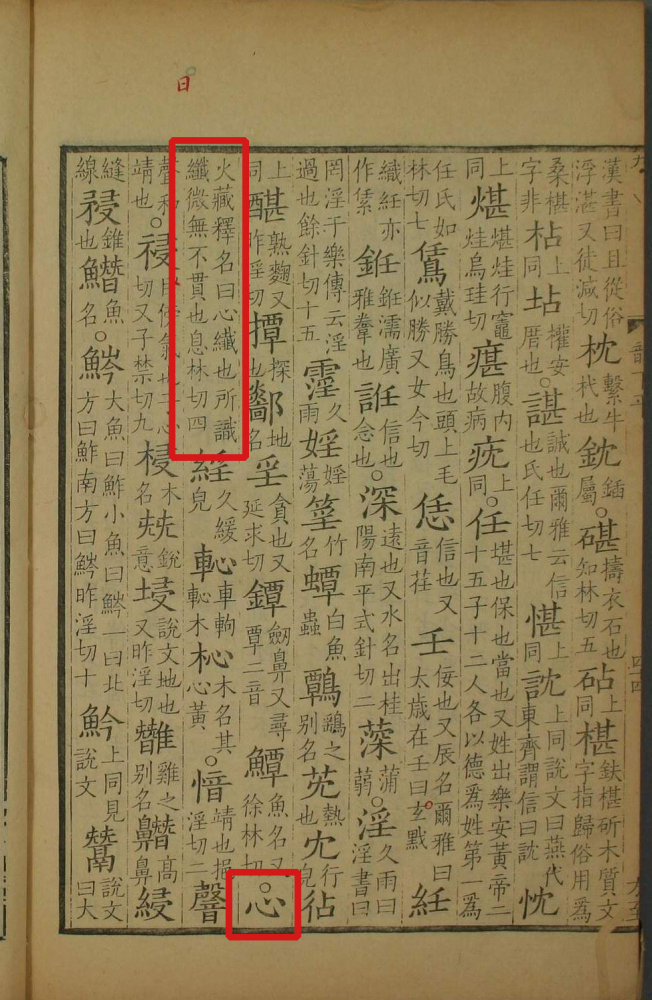 漢書曰且從俗浮湛又徒減切枕繫牛杙也鈂鍤屬○碪擣衣石也知林切五砧上同椹鈇椹斫木質文字指歸俗用爲
桑椹字非枮上同坫權安厝也○諶誠也爾雅云信也氏任切七愖上同訦上同說文曰燕代東齊謂信曰訦忱
上同煁煁烓行竈烓烏珪切腹内故病上同○任堪也保也當也又姓出樂安黃帝二十五子十二人各以德爲姓第一爲
任氏如林切七鵀戴勝鳥也頭上毛似勝又女今切恁信也又音荏壬佞也又辰名爾雅曰太歲在壬曰玄黓紝
織紝亦作䋕銋銋濡廣雅韏也信也念也○深遠也又水名出桂陽南平式針切二蒲蒻○淫久雨曰淫書曰
罔淫于樂傳云淫過也餘針切十五霪久雨婬婬蕩竹名蟫白魚蟲鷣鷂之别名熱也冘行皃
上同熟麴又昨淫切撏探也鄩地名貪也又延求切鐔劒鼻又尋覃二音鱏魚名又徐林切○心
火藏釋名曰心纖也所識纖微無不貫也息林切四久緩皃車軥木杺木名其心黃○愔靖也挹淫切二
聲和靖也○祲日傍氣也子心切又子禁切九梫木名兓銳意埐說文地也又昨淫切鷄之别名高鼻綅
縫線錐也魚名○大魚曰鮓小魚曰一曰北方曰鮓南方曰昨淫切十魿上同見說文鬵說文曰大
日